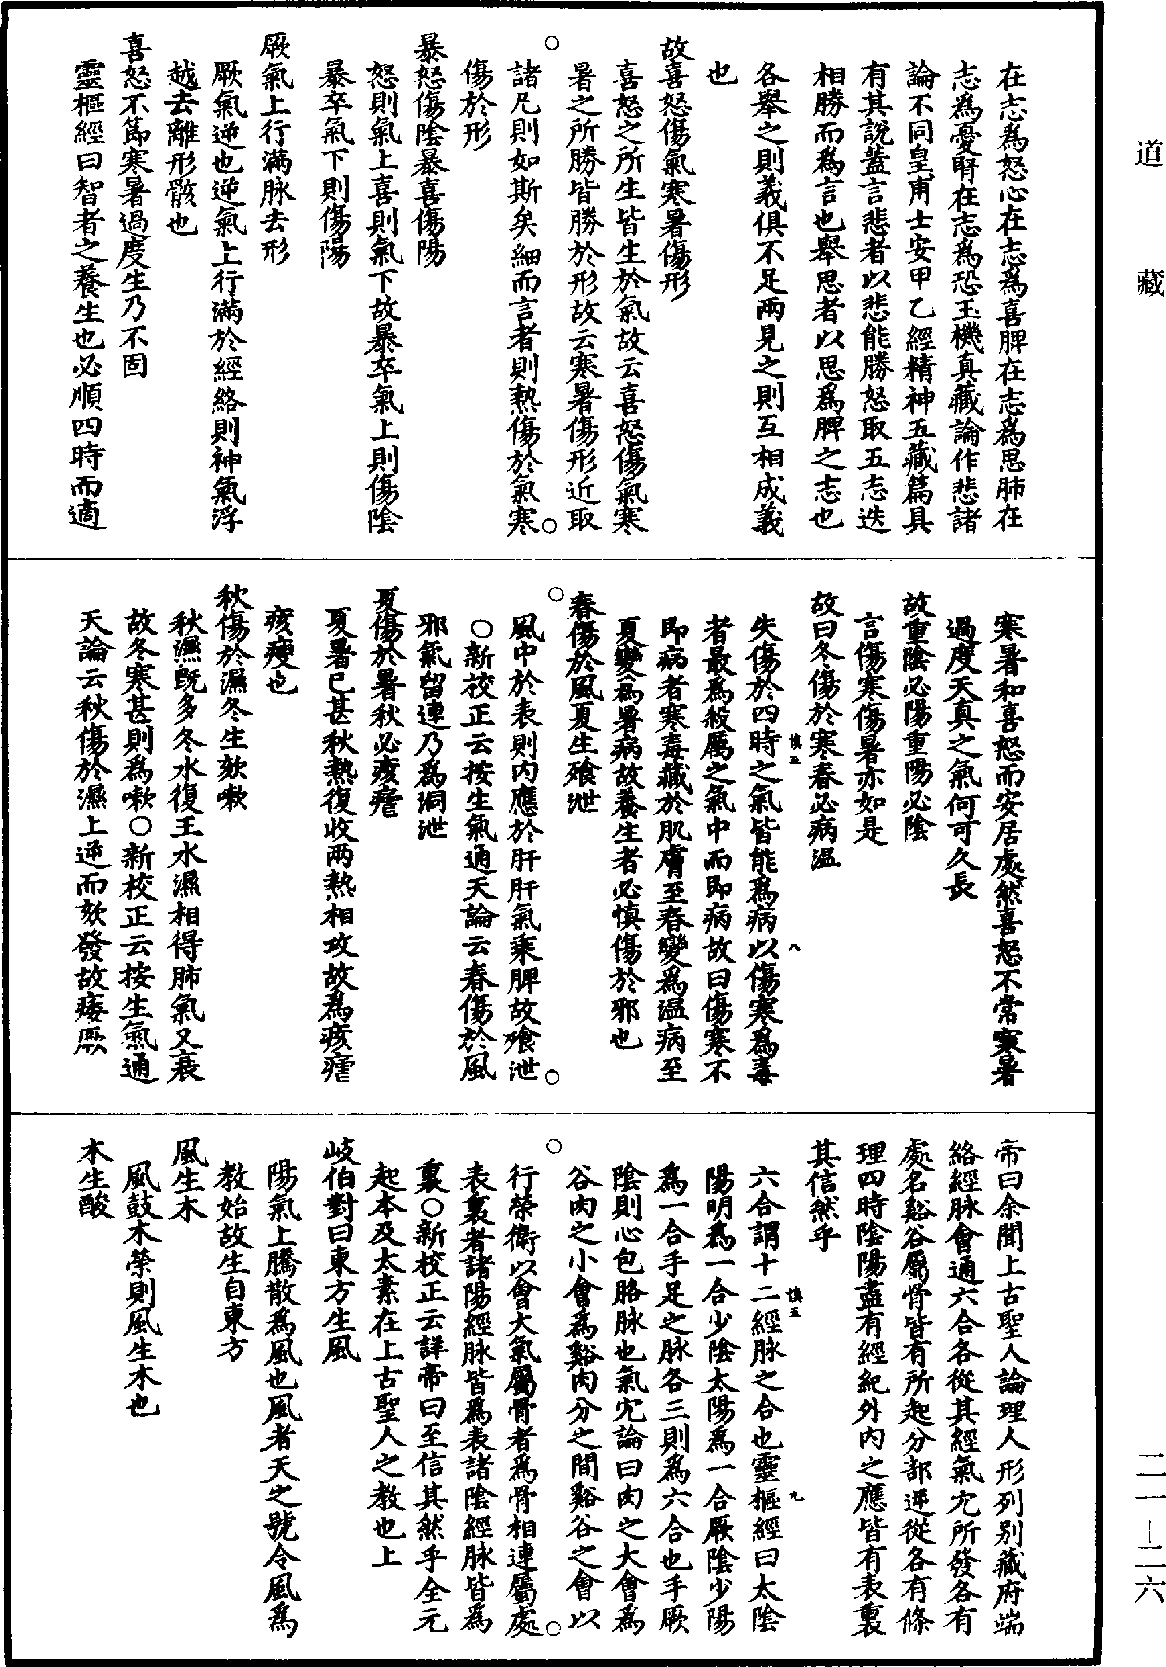 道藏
在志為怒心在志為喜脾在志為思肺在
志為憂腎在志為恐玉機真藏論作悲諸
論不同皇甫士安甲乙經精神五藏篇具
有其說蓋言悲者以悲能勝怒取五志迭
相勝而為言也舉思者以思為脾之志也
各舉之則義俱不足兩見之則互相成義
也
故喜怒傷氣寒暑傷形
喜怒之所生皆生於氣故云喜怒傷氣寒
暑之所勝皆勝於形故云寒暑傷形近取
諸凡則如斯矣細而言者則熱傷於氣寒
傷於形
暴怒傷陰暴喜傷陽
怒則氣上喜則氣下故暴卒氣上則傷陰
暴卒氣下則傷陽
厥氣上行滿脉去形
厥氣逆也逆氣上行滿於經絡則神氣浮
越去離形骸也
喜怒不節寒暑過度生乃不固
靈樞經曰智者之養生也必順四時而適
寒暑和喜怒而安居處然喜怒不常寒暑
過度天真之氣何可久長
故重陰必陽重陽必陰
言傷寒傷暑亦如是
故曰冬傷於寒春必病溫
夫傷於四時之氣皆能為病以傷寒為毒
者最為殺厲之氣中而即病故曰傷寒不
即病者寒毒藏於肌膚至春變為溫病至
夏變為暑病故養生者必慎傷於邪也
春傷於風夏生飱泄
風中於表則內應於肝肝氣乘脾故飱泄
○新校正云按生氣通天論云春傷於風
邪氣留連乃為洞泄
夏傷於暑秋必痎瘧
夏暑已甚秋熱復收兩熱相攻故為痎瘧
痎瘦也
秋傷於濕冬生欬嗽
秋濕既多冬水復王水濕相得肺氣又衰
故冬寒甚則為嗽○新校正云按生氣通
天論云秋傷於濕上逆而欬發故痿厥
帝曰余聞上古聖人論理人形列別藏府端
絡經脉會通六合各從其經氣穴所發各有
處名谿谷屬骨皆有所起分部逆從各有條
理四時陰陽盡有經紀外內之應皆有表裏
其信然乎
六合謂十二經脉之合也靈樞經曰太陰
陽明為一合少陰太陽為一合厥陰少陽
為一合手足之脉各三則為六合也手厥
陰則心包胳脉也氣穴論曰肉之大會為
谷肉之小會為谿肉分之間谿谷之會以
行榮衛以會大氣屬骨者為骨相連屬處
表裏者諸陽經脉皆為表諸陰經脉皆為
裏○新校正云詳帝曰至信其然乎全元
起本及太素在上古聖人之教也上
岐伯對曰東方生風
陽氣上騰散為風也風者天之號令風為
教始故生自東方
風生木
風鼓木榮則風生木也
木生酸
慎五
八
慎五
九
二一－二六